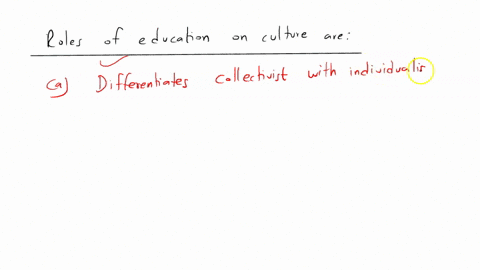 Roles of education on culture are:
(a) Differentiates collectivist with individualis